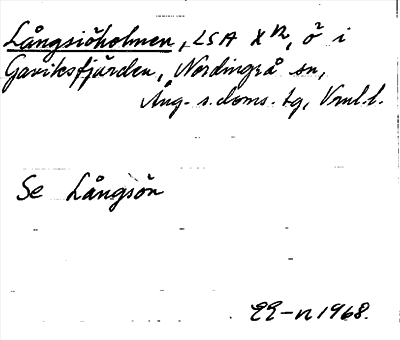 Långsiöholmen, LSA X½, ö² i
Gaviksfjärden, Nordingrå sn,
Ång. s. doms. tg, Vnrl. l.
Se Långsön
EE-n 1968.